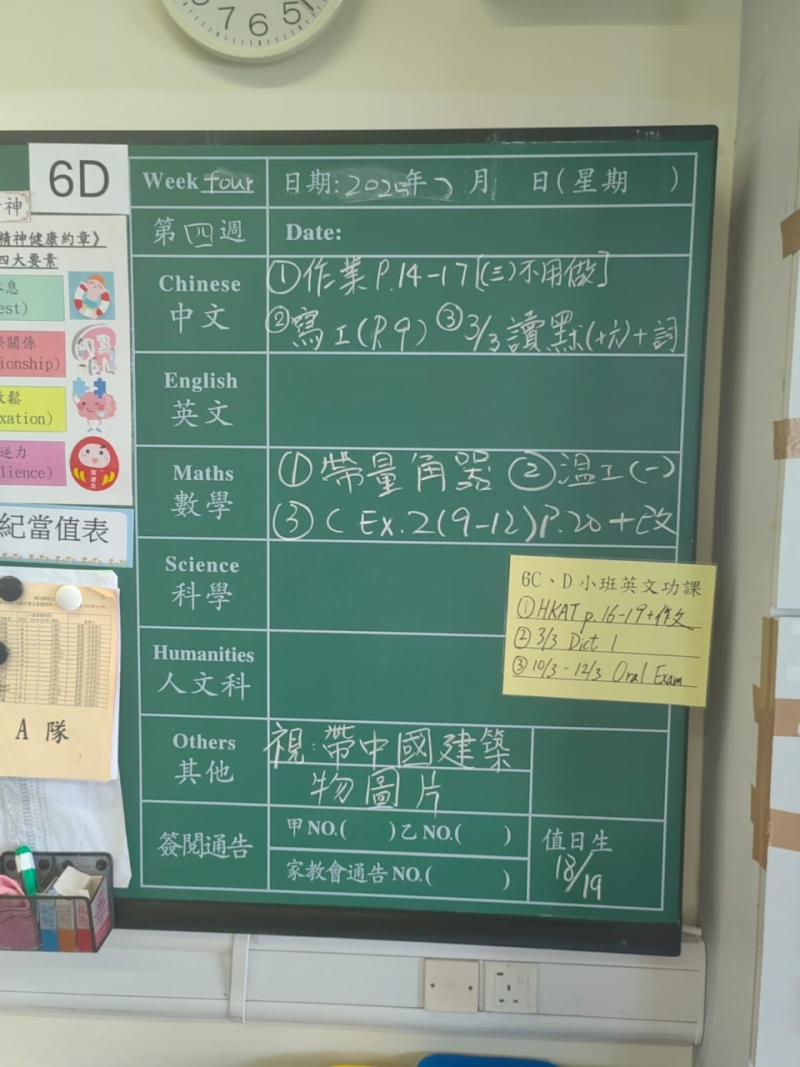 7 6 5
6D
Week four
日期: 2025年 月 日(星期 )
第四週
Date:
神
精神健康約章》
四大要素
息
est)
關係
ionship)
鬆
xation)
逆力
lience)
紀當值表
A 隊
Chinese
中文
①作業 P.14-17[(三)不用做]
②寫工(P.9) ③3/3讀默(十六)+詞
English
英文
Maths
數學
①帶量角器 ②溫工(一)
③C Ex.2(9-12)P.20+改
Science
科學
6C、D小班英文功課
①HKAT p.16-19+作文
②3/3 Dict 1
③10/3-12/3 Oral Exam
Humanities
人文科
Others
其他
視:帶中國建築
物圖片
簽閱通告
甲NO.( )乙NO.( )
家教會通告NO.( )
值日生
18/19